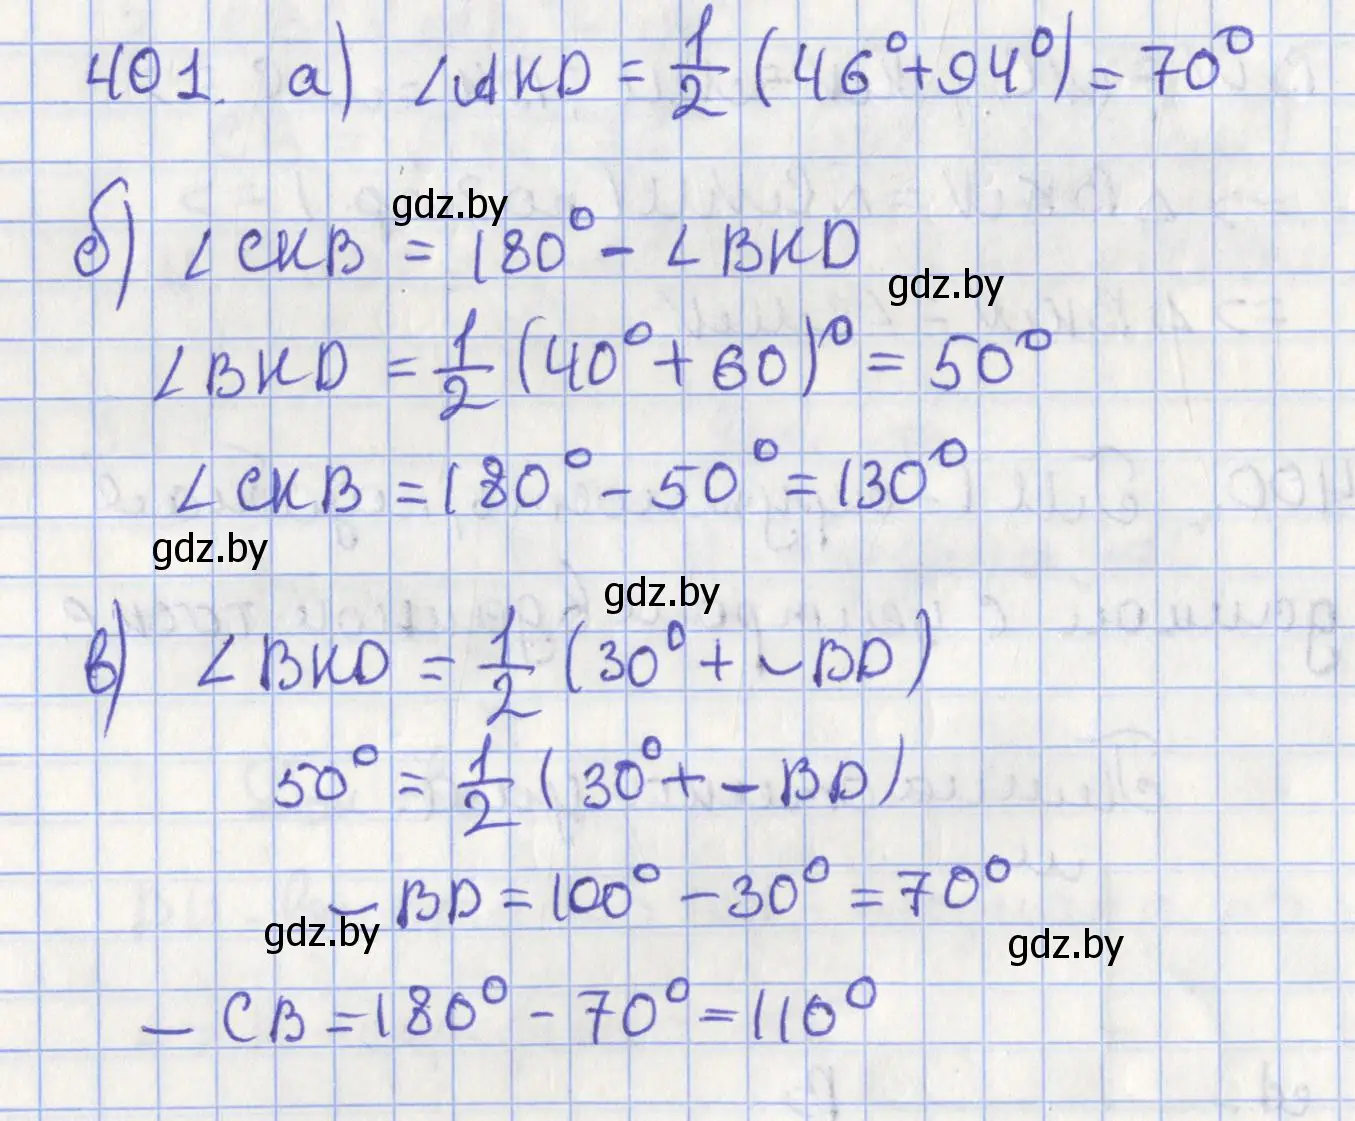 401. а) ∠AKD = 1/2 (46° + 94°) = 70°
gdz.by
б) ∠CKB = 180° - ∠BKD
gdz.by
∠BKD = 1/2 (40° + 60)° = 50°
∠CKB = 180° - 50° = 130°
gdz.by
gdz.by
в) ∠BKD = 1/2 (30° + ⌣BD)
50° = 1/2 (30° + ⌣BD)
⌣BD = 100° - 30° = 70°
gdz.by
gdz.by
⌣CB = 180° - 70° = 110°